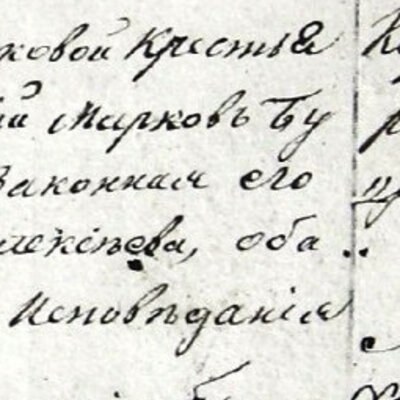 ковой Крестья
ій Марковъ Бу
Законная его
лексѣева, оба
Исповѣданія